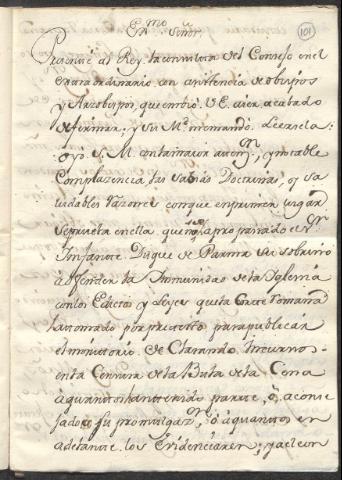 Ex.mo Señor
101
Presenté al Rey la consulta del Consejo en el
extraordinario con asistencia de obispos
y Arzobispos, que embió V.E. aier, acabado
de firmar; y su M. me mandó. Leersela:
oyó S. M. con la maior atenon., y notable
Complazencia las sabias Doctrinas, y sa
ludables razones con que en primer lugar
se prueba en ella, que no se á propasado el Sr.
Infante Duque de Parma su sobrino
a ofender la Inmunidad de la Iglesia
con los Edictos y Leyes que la Corte Romana
ha tomado por pretexto para publicar
el monitorio. De Clarando Incursos
en la Censura de la Bula de la Cena
a quantos han tenido parte, ó, aconse
jado en su promulgaon., ó á quantos en
adelante los evidenciaren; y ael con